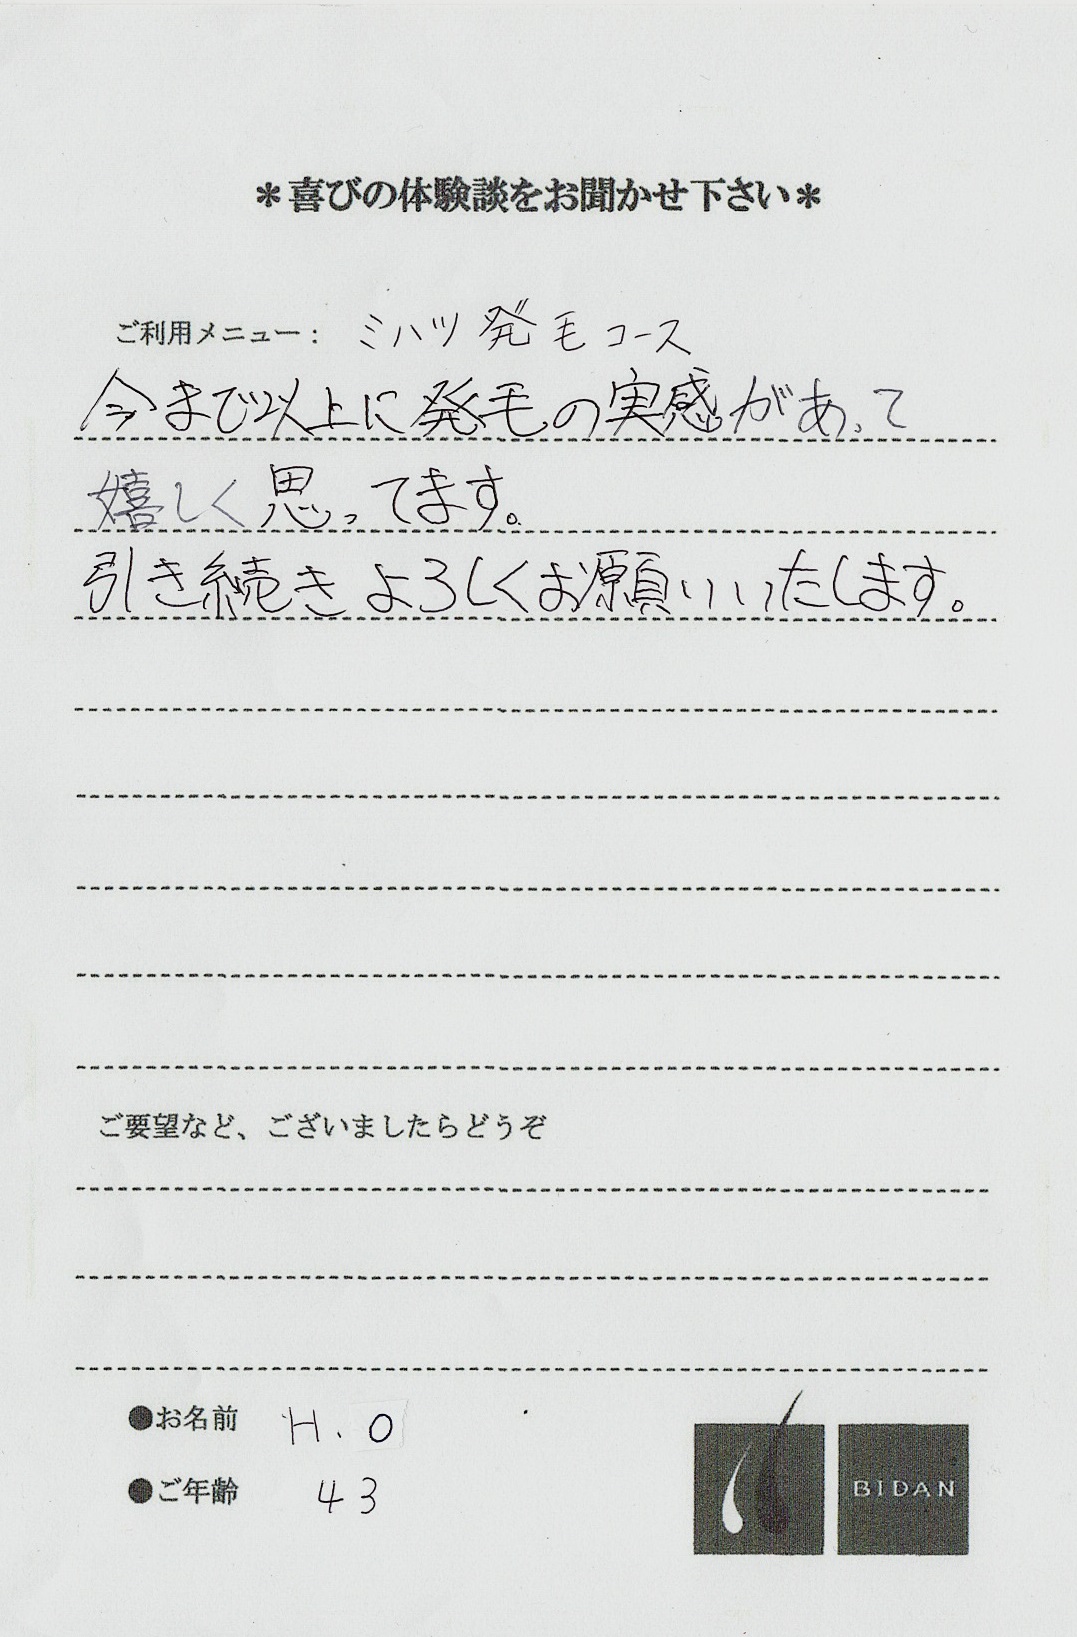 ＊喜びの体験談をお聞かせ下さい＊
ご利用メニュー： ミハツ発毛コース
今まで以上に発毛の実感があって
嬉しく思ってます。
引き続きよろしくお願いいたします。
ご要望など、ございましたらどうぞ
●お名前 H.O
●ご年齢 43
BiDAN